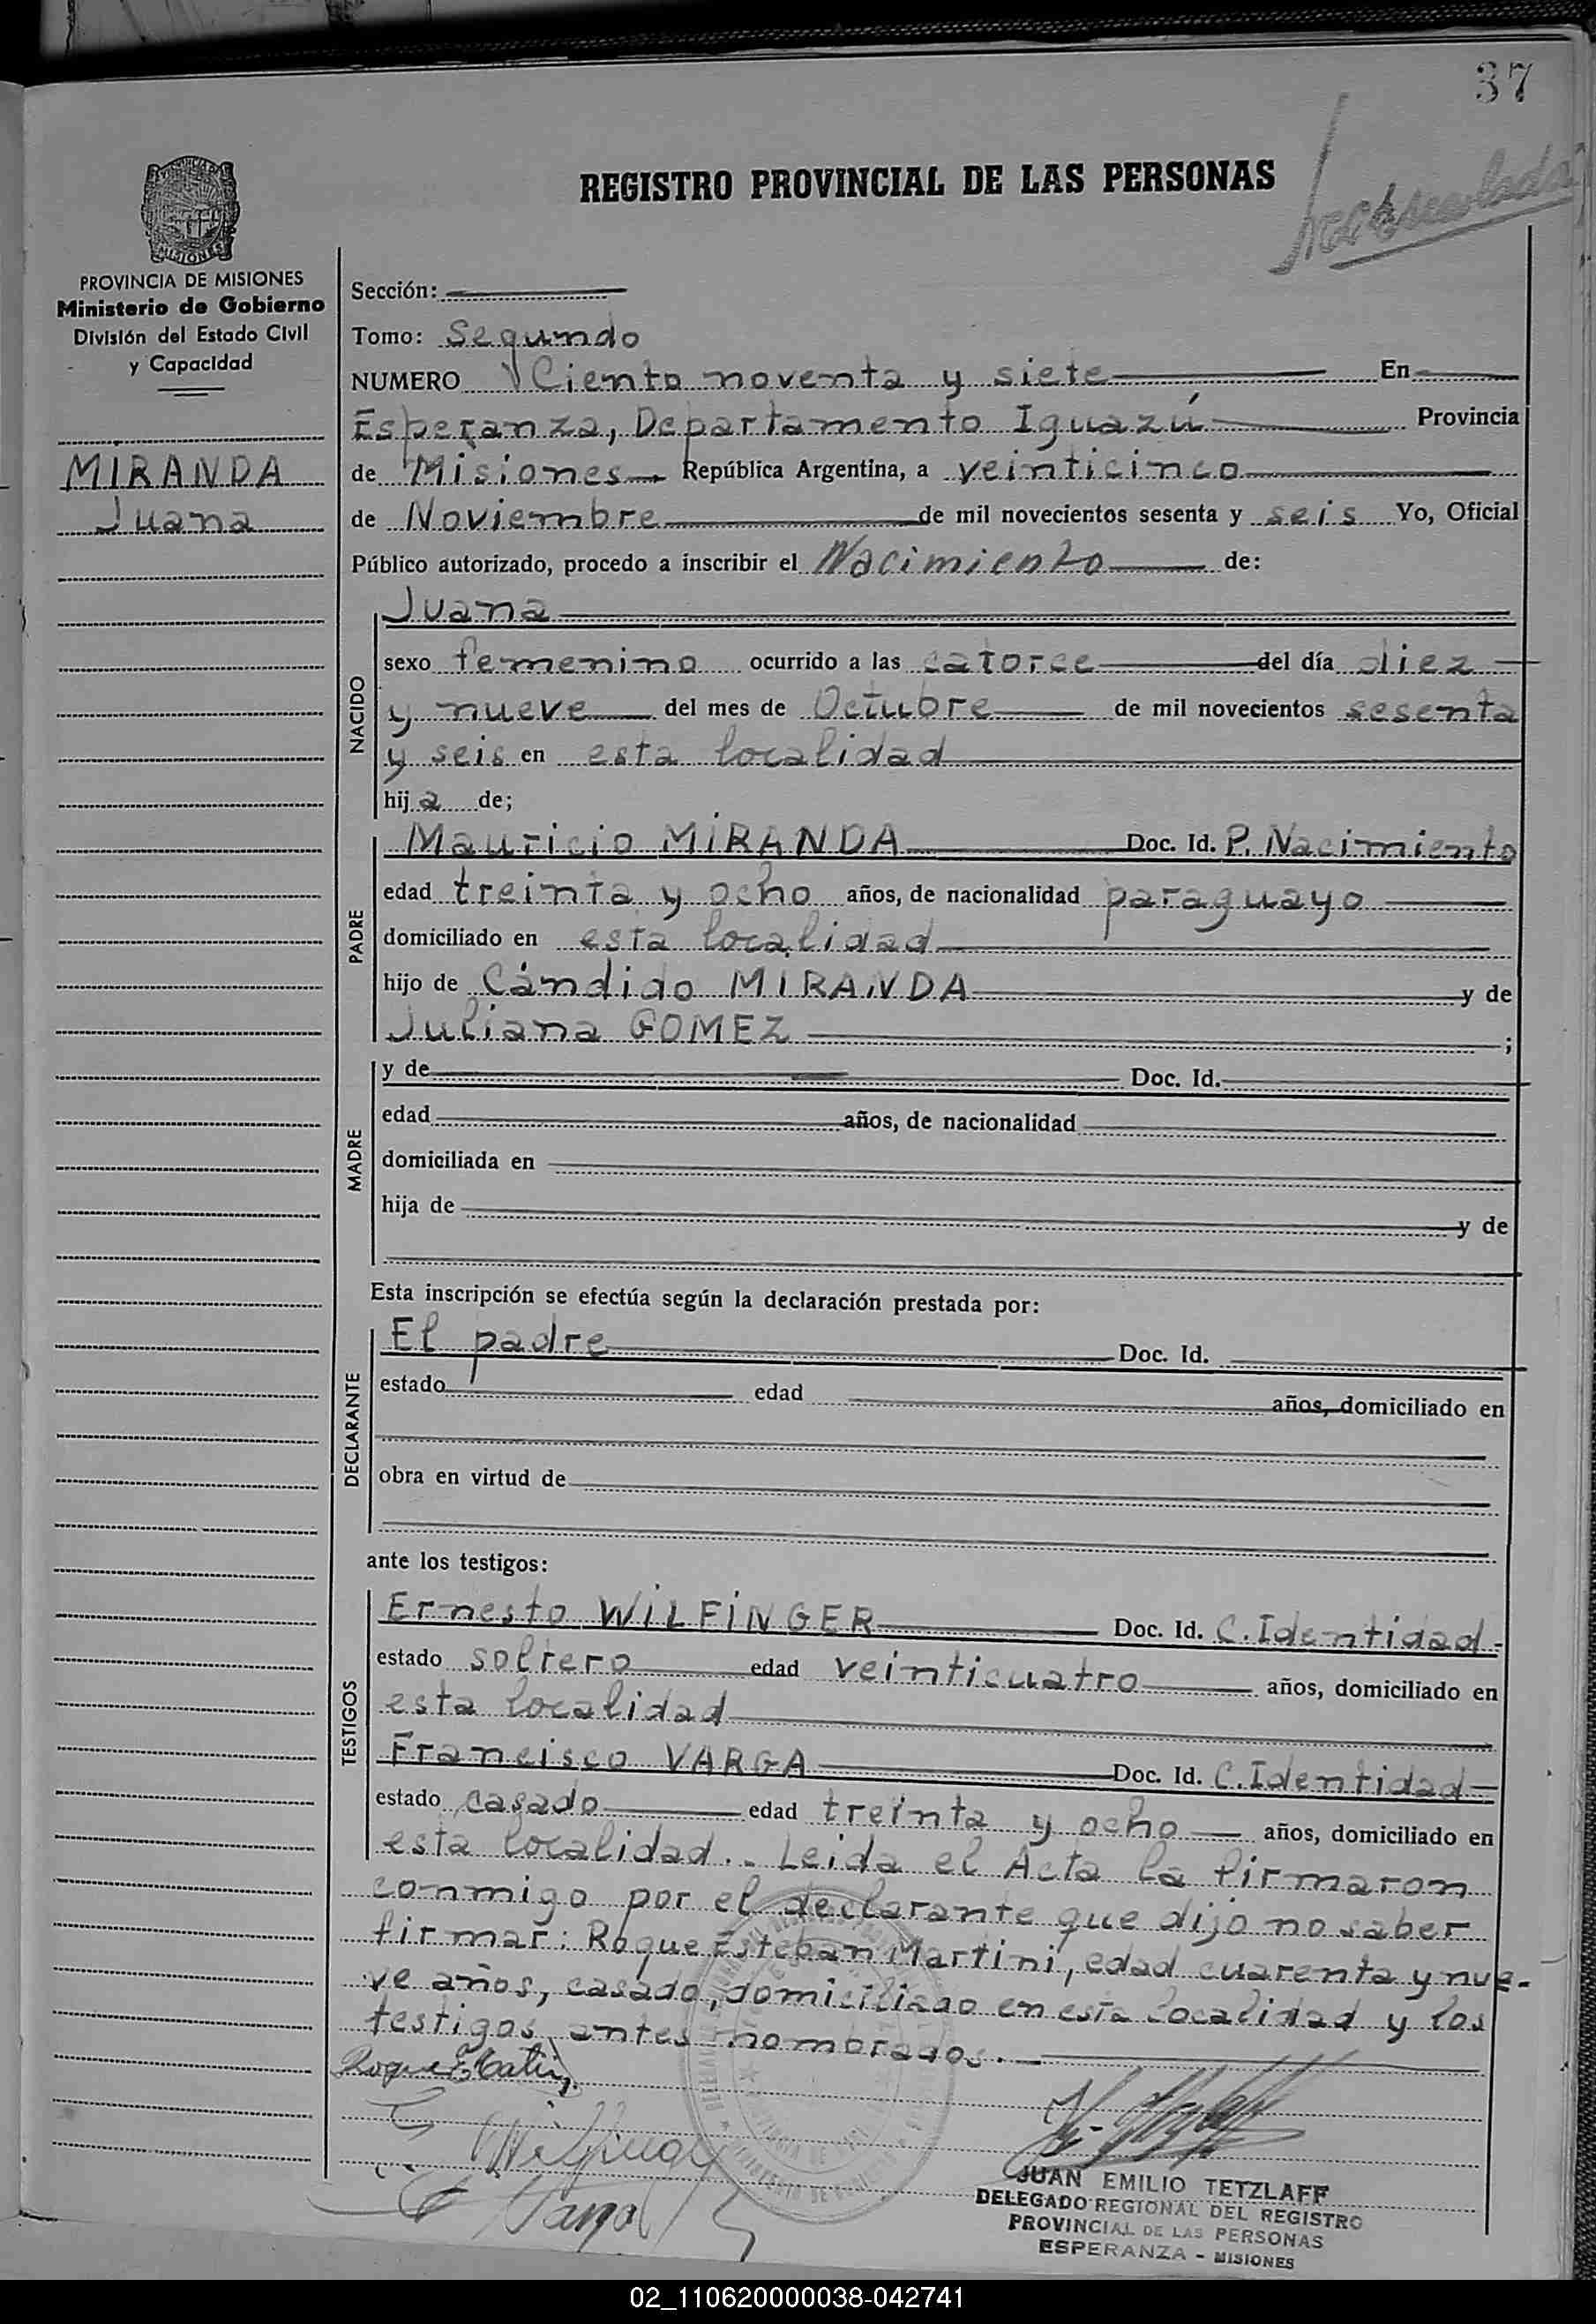 37
REGISTRO PROVINCIAL DE LAS PERSONAS
PROVINCIA DE MISIONES
Ministerio de Gobierno
División del Estado Civil
y Capacidad
MIRANDA
Juana
Sección:
Tomo: Segundo
NUMERO Ciento noventa y siete En
Esperanza, Departamento Iguazú Provincia
de Misiones República Argentina, a veinticinco
de Noviembre de mil novecientos sesenta y seis Yo, Oficial
Público autorizado, procedo a inscribir el Nacimiento de:
NACIDO
Juana
sexo femenino ocurrido a las catorce del día diez
y nueve del mes de Octubre de mil novecientos sesenta
y seis en esta localidad
hija de;
PADRE
Mauricio MIRANDA Doc. Id. P. Nacimiento
edad treinta y ocho años, de nacionalidad paraguayo
domiciliado en esta localidad
hijo de Cándido MIRANDA y de
Juliana GOMEZ ;
MADRE
y de Doc. Id.
edad años, de nacionalidad
domiciliada en
hija de y de
Esta inscripción se efectúa según la declaración prestada por:
DECLARANTE
El padre Doc. Id.
estado edad años, domiciliado en
obra en virtud de
ante los testigos:
TESTIGOS
Ernesto WILFINGER Doc. Id. C. Identidad-
estado soltero edad veinticuatro años, domiciliado en
esta localidad
Francisco VARGA Doc. Id. C. Identidad
estado casado edad treinta y ocho años, domiciliado en
esta localidad.- Leida el Acta la firmaron
conmigo por el declarante que dijo no saber
firmar: Roque Esteban Martini, edad cuarenta y nue-
ve años, casado, domiciliado en esta localidad y los
testigos antes nombrados.-
JUAN EMILIO TETZLAFF
DELEGADO REGIONAL DEL REGISTRO
PROVINCIAL DE LAS PERSONAS
ESPERANZA - MISIONES
02_110620000038-042741